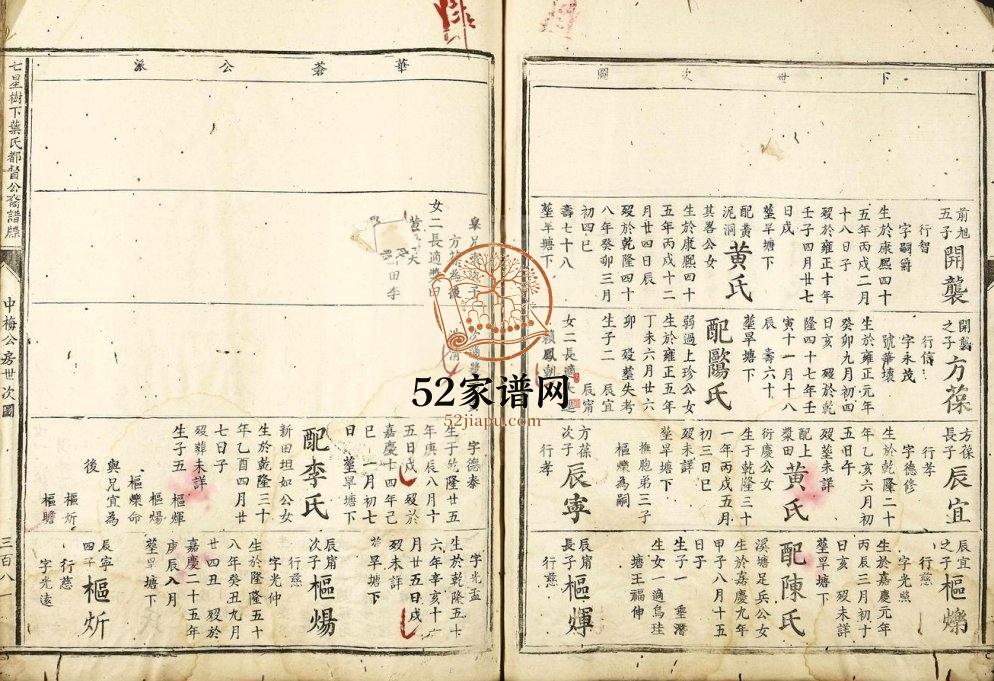 下世次圖
前旭
五子
開襲
行智
字嗣爵
生於康熙四十
五年丙戌二月
十八日子
歿於雍正十年
壬子四月廿七
日戌
塟旱塘下
配黃
泥洞
黃氏
其畧公女
生於康熙四十
五年丙戌十二
月廿四日辰
歿於乾隆四十
八年癸卯三月
初四巳
壽七十八
塟旱塘下
開襲
之子
方葆
行信
字永茂
號華壤
生於雍正元年
癸卯九月初四
日亥 歿於乾
隆四十七年壬
寅十一月十八
辰 壽六十
塟旱塘下
配鷗氏
弱過上珍公女
生於雍正五年
丁未六月廿六
卯 歿塟失考
生子二 辰宜
辰甯
女二長適
賴鳳朝
方葆
長子
辰宜
行孝
字德修
生於乾隆二十
年乙亥六月初
五日午
歿塟未詳
配上
漿田
黃氏
衍慶公女
生於乾隆三十
一年丙戌五月
初三日巳
歿塟未詳
塟旱塘下
撫胞弟三子
樞爍為嗣
方葆
次子
辰寧
行孝
辰宜
之子
樞爍
行慈
字光照
生於嘉慶元年
丙辰三月初十
日亥 歿未詳
塟旱塘下
配陳氏
溪塘足兵公女
生於嘉慶九年
甲子八月十五
日子
生子一 垂潛
生女一適烏珪
塘王福伸
辰甯
長子
樞煇
行慈
華蓥公派
女二長適
田李
字德春
生于乾隆廿五
年庚辰八月十
五日 歿於
嘉慶十四年己
巳 一月初七
日 塟旱塘下
配李氏
新田坦如公女
生於乾隆三十
年乙酉四月廿
七日子
歿葬未詳
生子五
樞煇
樞煬
樞爍命
與兄宜為
後
樞炘
樞瞻
字光盂
生於乾隆五十
六年辛亥十
月五日戌
歿未詳
旱塘下
辰甯
次子
樞煬
行慈
字光仲
生於隆隆五十
八年癸丑九月
廿四丑 歿於
嘉慶二十五年
庚辰八月
塟旱塘下
辰寧
四子
樞炘
行慈
字光遠
七星樹下葉氏都督公裔譜牒
中梅公房世次圖
三百八
52家谱网
52jiapu.com